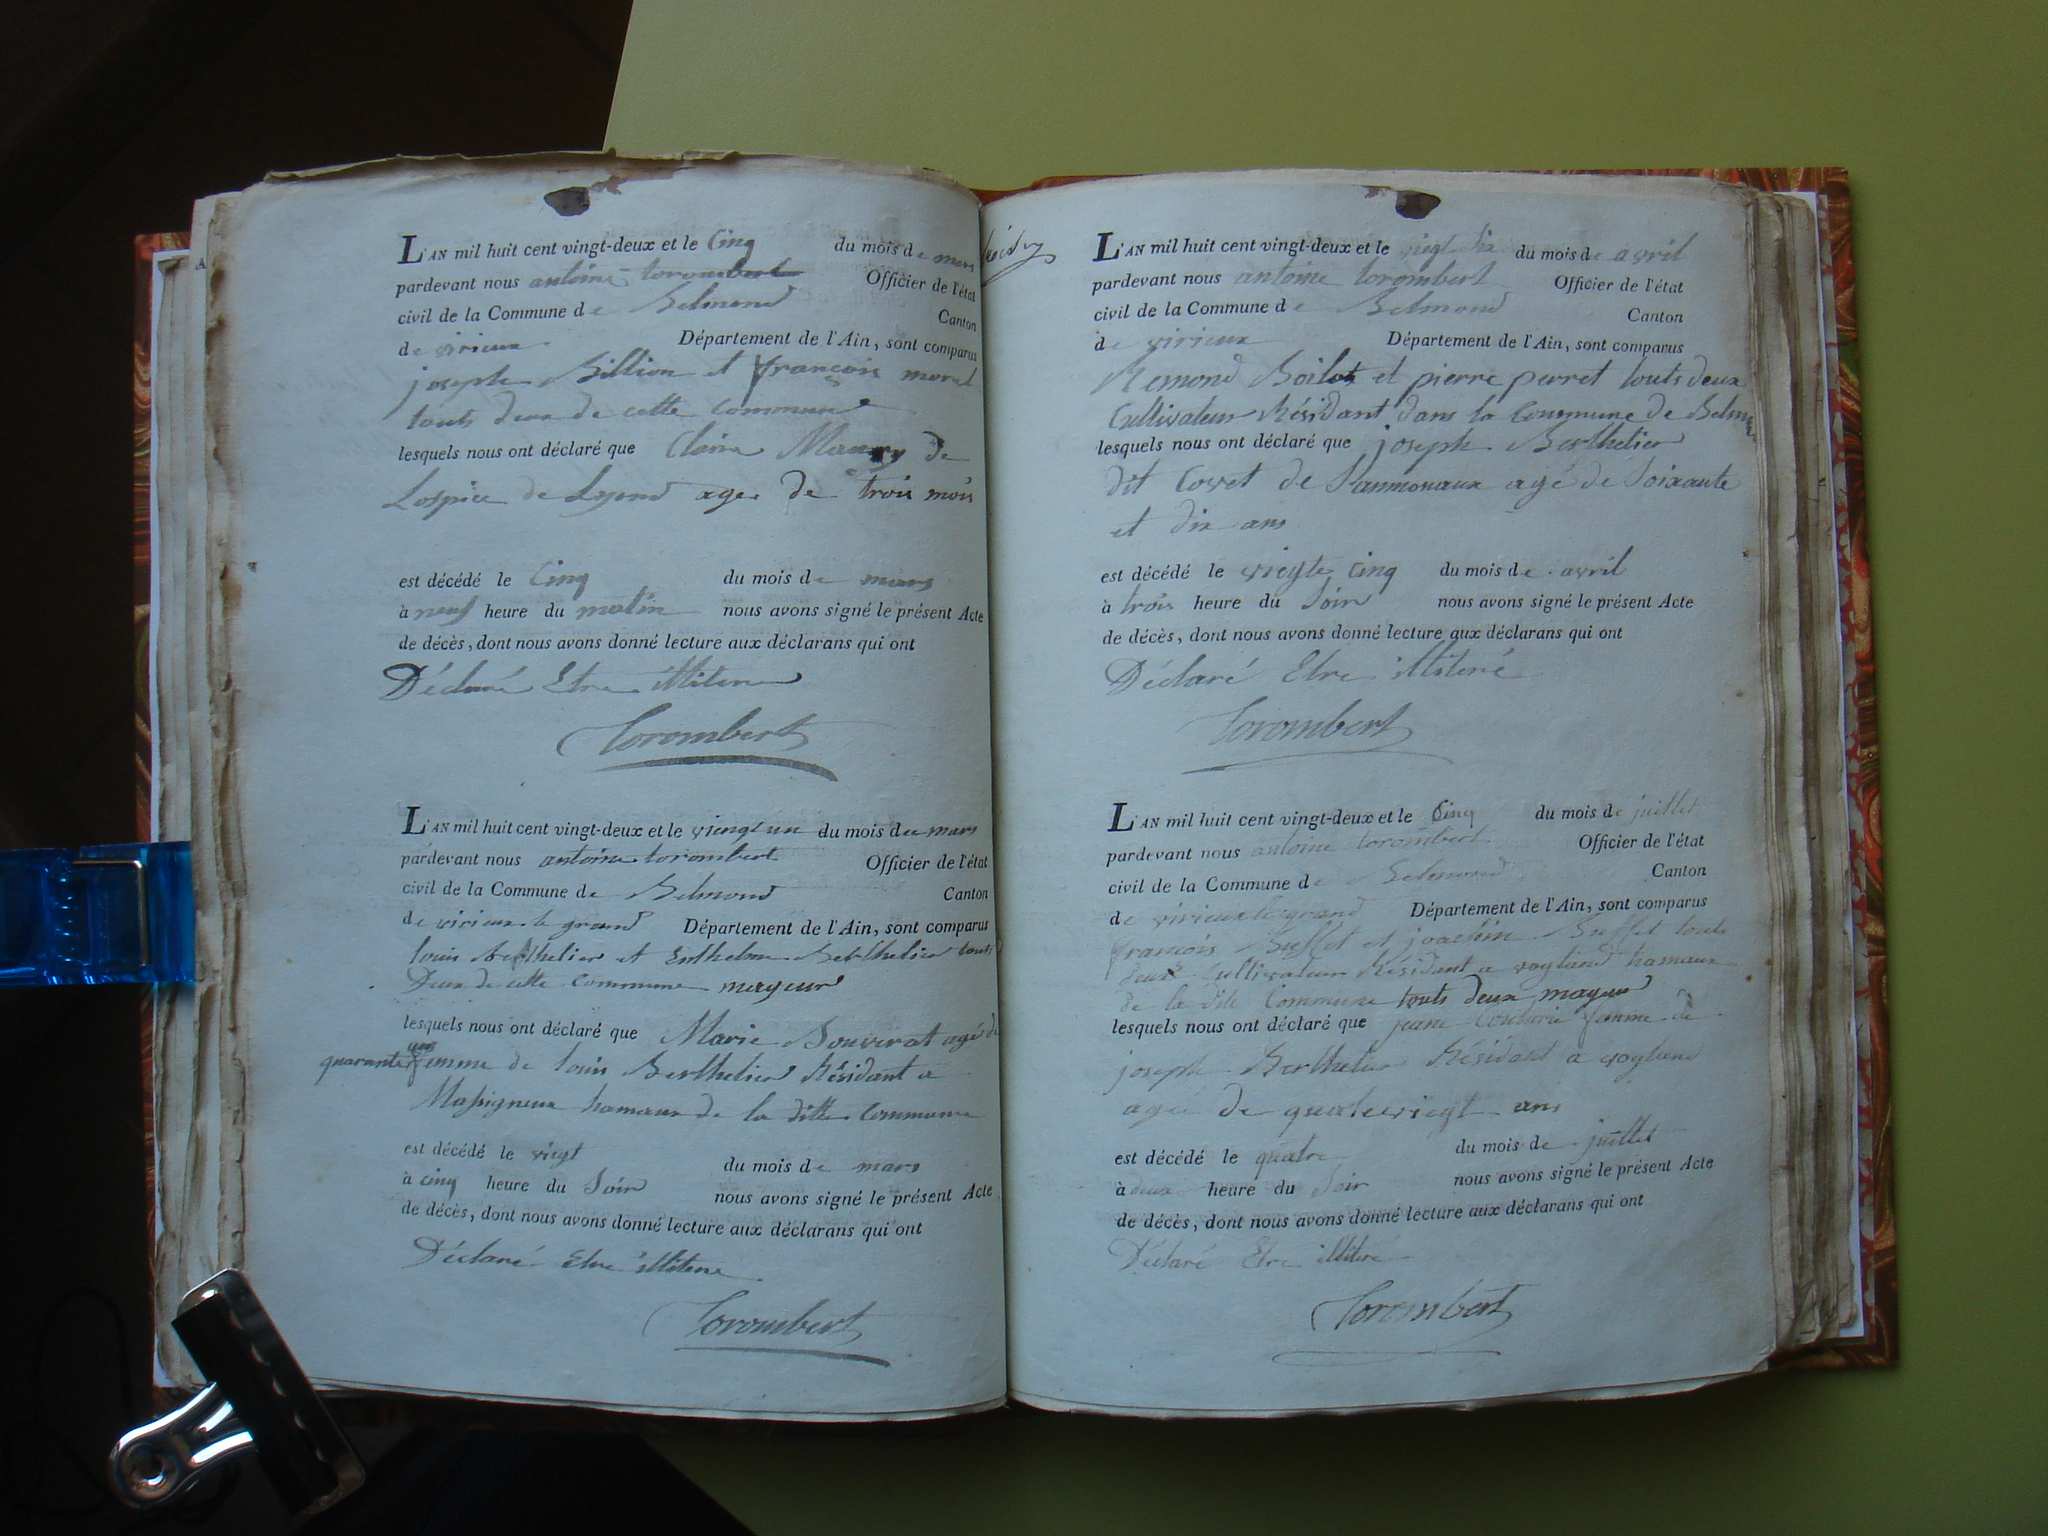 L'AN mil huit cent vingt-deux et le Cinq du mois de mars
pardevant nous antoine torombert Officier de l'état
civil de la Commune de Belmond Canton
de virieux Département de l'Ain, sont comparus
joseph Billion et françois morel
touts deux de cette commune
lesquels nous ont déclaré que Claire Maury de
Lospice de Lyond agee de trois mois
est décédé le Cinq du mois de mars
à neuf heure du matin nous avons signé le présent Acte
de décès, dont nous avons donné lecture aux déclarans qui ont
Déclaré Etre illitere
Torombert
L'AN mil huit cent vingt-deux et le viengt un du mois de mars
pardevant nous antoine torombert Officier de l'état
civil de la Commune de Belmond Canton
de virieux le grand Département de l'Ain, sont comparus
louis Berthelier et Enthelme Berthelier touts
Deux de cette commune mageur
lesquels nous ont déclaré que Marie Souvirat agé de
quarante un femme de louis Berthelier Résidant a
Massigneux hamaux de la ditte Commune
est décédé le viegt du mois de mars
à cinq heure du Soir nous avons signé le présent Acte
de décès, dont nous avons donné lecture aux déclarans qui ont
Déclaré Etre illitere
Torombert
L'AN mil huit cent vingt-deux et le viegt six du mois de avril
pardevant nous antoine torombert Officier de l'état
civil de la Commune de Belmond Canton
de virieux Département de l'Ain, sont comparus
Remond Boilot et pierre perret touts deux
Cultivateur Résidant dans la Commune de
lesquels nous ont déclaré que joseph Berthelier
dit Covet de Sanmonaux agé de Soixante
et dix ans
est décédé le viegte cinq du mois de avril
à trois heure du Soir nous avons signé le présent Acte
de décès, dont nous avons donné lecture aux déclarans qui ont
Déclaré Etre illiteré
Torombert
L'AN mil huit cent vingt-deux et le Cinq du mois de juillet
pardevant nous antoine torombert Officier de l'état
civil de la Commune de Belmond Canton
de virieux le grand Département de l'Ain, sont comparus
françois Buffet et joachin Buffet touts
deux Cultivateur Résidant a vogland hamaux
de la dite Commune touts deux mageur
lesquels nous ont déclaré que jeane femme de
joseph Berthelier Résidant a vogland
agee de quateviegt ans
est décédé le quatre du mois de juillet
à deux heure du Soir nous avons signé le présent Acte
de décès, dont nous avons donné lecture aux déclarans qui ont
Déclaré Etre illiteré
Torombert